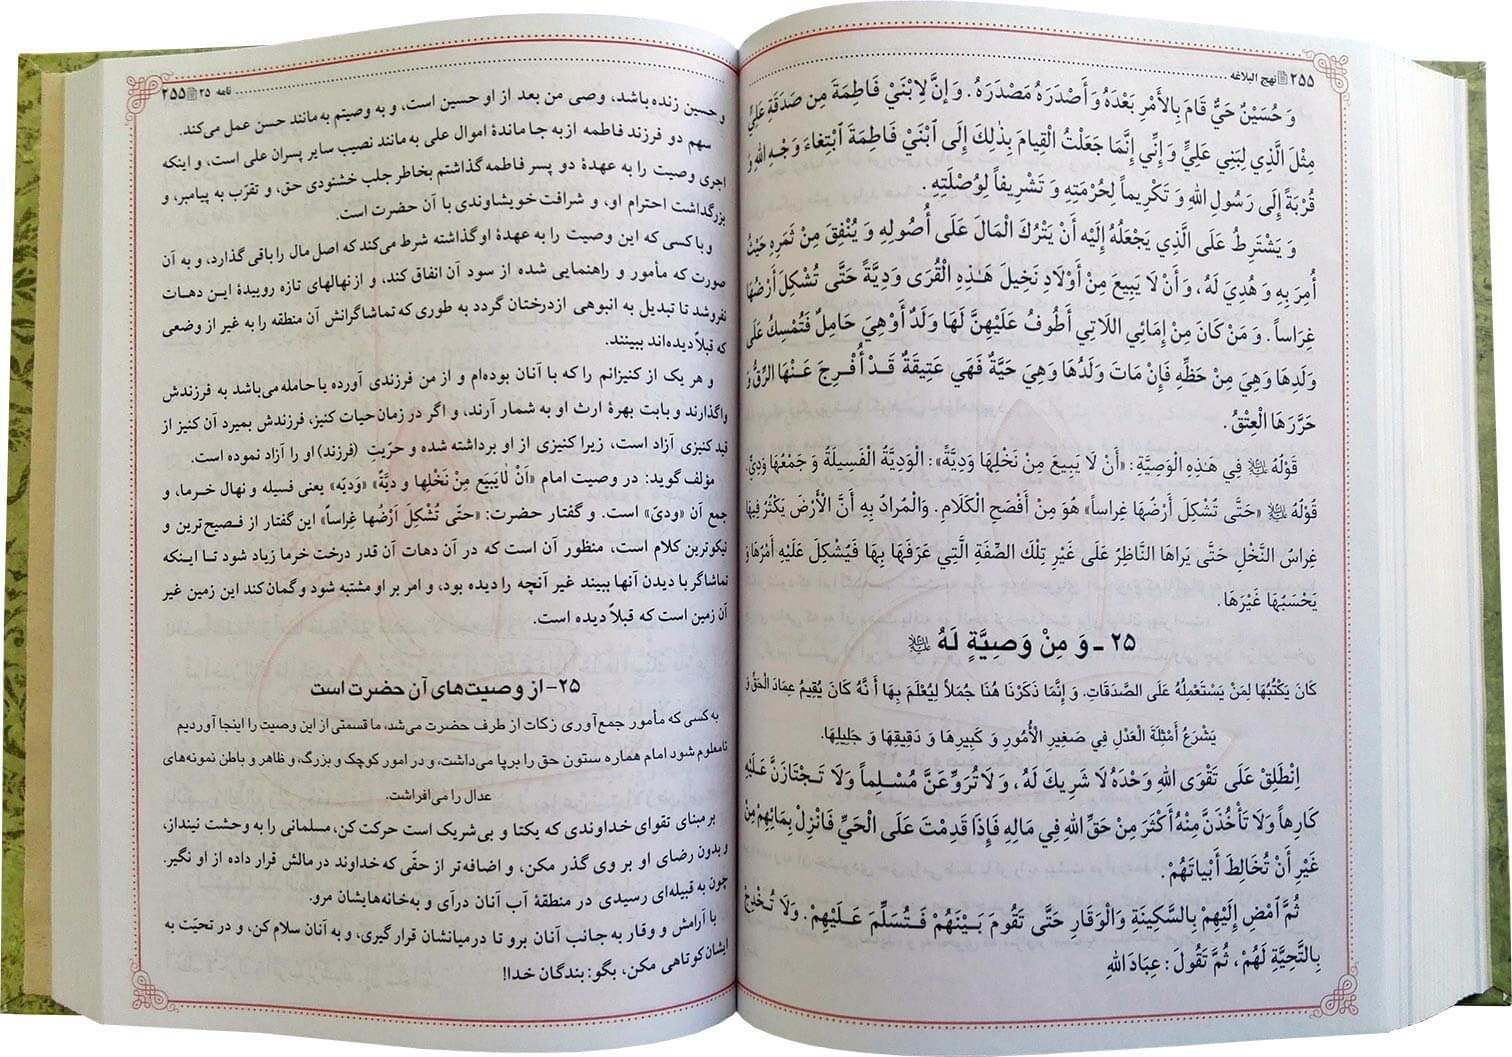 ۲۵۵ نهج البلاغه
وَ حُسَيْنٌ حَيٌّ قَامَ بِالأَمْرِ بَعْدَهُ وَ أَصْدَرَهُ مَصْدَرَهُ . وَ إنَّ لِابْنَيْ فَاطِمَةَ مِن صَدَقَةِ عَلِيٍّ
مِثْلَ الَّذِي لِبَنِي عَلِيٍّ وَ إِنِّي إِنَّمَا جَعَلْتُ الْقِيَامَ بِذٰلِكَ إِلَى ابْنَيْ فَاطِمَةَ ابْتِغَاءَ وَجْهِ اللهِ وَ
قُرْبَةً إِلَى رَسُولِ اللهِ وَ تَكْرِيماً لِحُرْمَتِهِ وَ تَشْرِيفاً لِوُصْلَتِهِ .
وَ يَشْتَرِطُ عَلَى الَّذِي يَجْعَلُهُ إِلَيْهِ أَنْ يَتْرُكَ الْمَالَ عَلَى أُصُولِهِ وَ يُنْفِقَ مِنْ ثَمَرِهِ حَيْثُ
أُمِرَ بِهِ وَ هُدِيَ لَهُ ، وَ أَنْ لَا يَبِيعَ مِنْ أَوْلَادِ نَخِيلِ هَـٰذِهِ الْقُرَى وَدِيَّةً حَتَّى تُشْكِلَ أَرْضُهَا
غِرَاساً . وَ مَنْ كَانَ مِنْ إِمَائِي اللَّاتِي أَطُوفُ عَلَيْهِنَّ لَهَا وَلَدٌ أَوْ هِيَ حَامِلٌ فَتُمْسِكُ عَلَى
وَلَدِهَا وَهِيَ مِنْ حَظِّهِ فَإِنْ مَاتَ وَلَدُهَا وَهِيَ حَيَّةٌ فَهِيَ عَتِيقَةٌ قَدْ أُفْرِجَ عَنْهَا الرِّقُّ وَ
حَرَّرَهَا الْعِتْقُ .
قَوْلُهُ ﷷ فِي هَـٰذِهِ الْوَصِيَّةِ : «أَنْ لَا يَبِيعَ مِنْ نَخْلِهَا وَدِيَّةً» : الْوَدِيَّةُ الْفَسِيلَةُ وَ جَمْعُهَا وَدِيٌّ.
قَوْلُهُ «حَتَّى تُشْكِلَ أَرْضُهَا غِراساً» هُوَ مِنْ أَفْصَحِ الْكَلَامِ . وَالْمُرَادُ بِهِ أَنَّ الْأَرْضَ يَكْثُرُ فِيهَا
غِراسُ النَّخْلِ حَتَّى يَرَاهَا النَّاظِرُ عَلَى غَيْرِ تِلْكَ الصِّفَةِ الَّتِي عَرَفَهَا بِهَا فَيُشْكِلَ عَلَيْهِ أَمْرُهَا وَ
يَحْسَبُهَا غَيْرَهَا .
۲۵ ـ وَ مِنْ وَصِيَّةٍ لَهُ
كَانَ يَكْتُبُهَا لِمَنْ يَسْتَعْمِلُهُ عَلَى الصَّدَقَاتِ. وَ إِنَّمَا ذَكَرْنَا هُنَا جُمَلاً لِيُعْلَمَ بِهَا أَنَّهُ كَانَ يُقِيمُ عِمَادَ الْحَقِّ وَ
يَشْرَعُ أَمْثِلَةَ الْعَدْلِ فِي صَغِيرِ الأُمُورِ وَ كَبِيرِهَا وَ دَقِيقِهَا وَ جَلِيلِهَا.
اِنْطَلِقْ عَلَى تَقْوَى اللهِ وَحْدَهُ لَا شَرِيكَ لَهُ ، وَ لَا تُرَوِّعَنَّ مُسْلِماً وَلَا تَجْتَازَنَّ عَلَيْهِ
كَارِهاً وَلَا تَأْخُذَنَّ مِنْهُ أَكْثَرَ مِنْ حَقِّ اللهِ فِي مَالِهِ فَإِذَا قَدِمْتَ عَلَى الْحَيِّ فَانْزِلْ بِمَائِهِمْ مِنْ
غَيْرِ أَنْ تُخَالِطَ أَبْيَاتَهُمْ .
ثُمَّ امْضِ إِلَيْهِمْ بِالسَّكِينَةِ وَالْوَقَارِ حَتَّى تَقُومَ بَيْنَهُمْ فَتُسَلِّمَ عَلَيْهِمْ . وَلَا تُخْدِجْ
بِالتَّحِيَّةِ لَهُمْ ، ثُمَّ تَقُولَ : عِبَادَ اللهِ
نامه ۲۵ ۲۵۵
و حسین زنده باشد، وصی من بعد از او حسین است، و به وصیتم به مانند حسن عمل می‌کند.
سهم دو فرزند فاطمه از به جا ماندهٔ اموال علی به مانند نصیب سایر پسران علی است، و اینکه
اجری وصیت را به عهدهٔ دو پسر فاطمه گذاشتم بخاطر جلب خشنودی حق، و تقرّب به پیامبر، و
بزرگداشت احترام او، و شرافت خویشاوندی با آن حضرت است.
و با کسی که این وصیت را به عهدهٔ او گذاشته شرط می‌کند که اصل مال را باقی گذارد، و به آن
صورت که مأمور و راهنمایی شده از سود آن انفاق کند، و از نهالهای تازه روییدهٔ این دهات
نفروشد تا تبدیل به انبوهی از درختان گردد به طوری که تماشاگرانش آن منطقه را به غیر از وضعی
که قبلاً دیده‌اند ببینند.
و هر یک از کنیزانم را که با آنان بوده‌ام و از من فرزندی آورده یا حامله می‌باشد به فرزندش
واگذارند و بابت بهرهٔ ارث او به شمار آرند، و اگر در زمان حیات کنیز، فرزندش بمیرد آن کنیز از
قید کنیزی آزاد است، زیرا کنیزی از او برداشته شده و حرّیتِ (فرزند) او را آزاد نموده است.
مؤلف گوید: در وصیت امام «أَنْ لایَبیَع مِنْ نَخْلِها و دیَّةً» «وَدیّه» یعنی فسیله و نهال خرما، و
جمع آن «ودیّ» است. و گفتار حضرت: «حتّی تُشْکِلَ اَرْضُها غِراساً» این گفتار از فصیح‌ترین و
نیکوترین کلام است، منظور آن است که در آن دهات آن قدر درخت خرما زیاد شود تا اینکه
تماشاگر با دیدن آنها ببیند غیر آنچه را دیده بود، و امر بر او مشتبه شود و گمان کند این زمین غیر
آن زمین است که قبلاً دیده است.
۲۵- از وصیت‌های آن حضرت است
به کسی که مأمور جمع‌آوری زکات از طرف حضرت می‌شد، ما قسمتی از این وصیت را اینجا آوردیم
تا معلوم شود امام هماره ستون حق را برپا می‌داشت، و در امور کوچک و بزرگ، و ظاهر و باطن نمونه‌های
عدال را می‌افراشت.
بر مبنای تقوای خداوندی که یکتا و بی‌شریک است حرکت کن، مسلمانی را به وحشت نینداز،
و بدون رضای او بر وی گذر مکن، و اضافه‌تر از حقّی که خداوند در مالش قرار داده از او نگیر.
چون به قبیله‌ای رسیدی در منطقهٔ آب آنان درآی و به خانه‌هایشان مرو.
با آرامش و وقار به جانب آنان برو تا در میانشان قرار گیری، و به آنان سلام کن، و در تحیّت به
ایشان کوتاهی مکن، بگو: بندگان خدا!